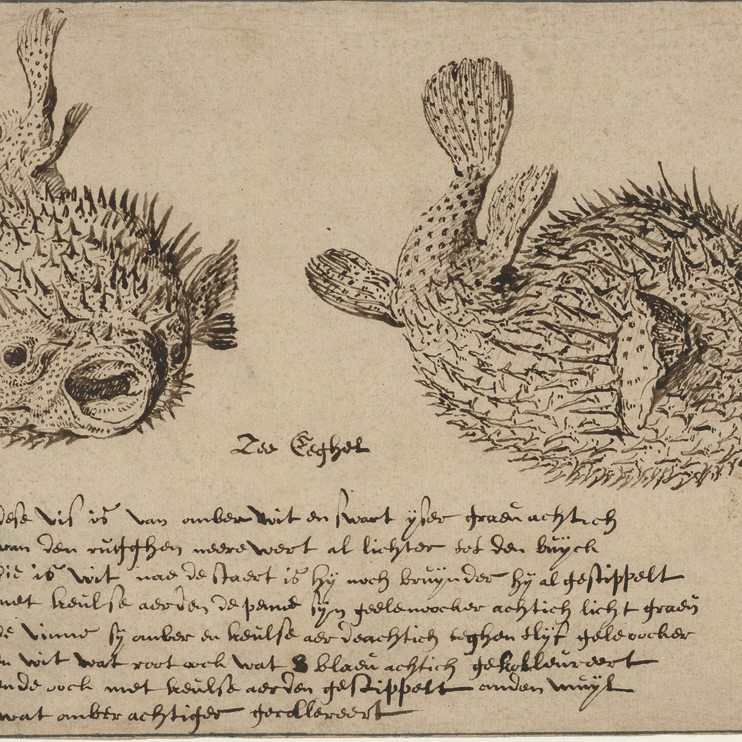 Zee Eeghel
dese vis is van omber wit en swart yser graeuachtich
van den rugghen neerewert al lichter tot den buyck
die is wit nae de staert is hy noch bruynder hy al gestippelt
met keulse aerden de penne syn geelenoocker achtich licht graeu
de vinne sy omber en keulse aerdeachtich teghen tlyf geleoocker
en wit wat root oock wat blaeuachtich gekolleureert
ende oock met keulse aerden gestippelt anden muyl
wat omberachtiger gecollereert